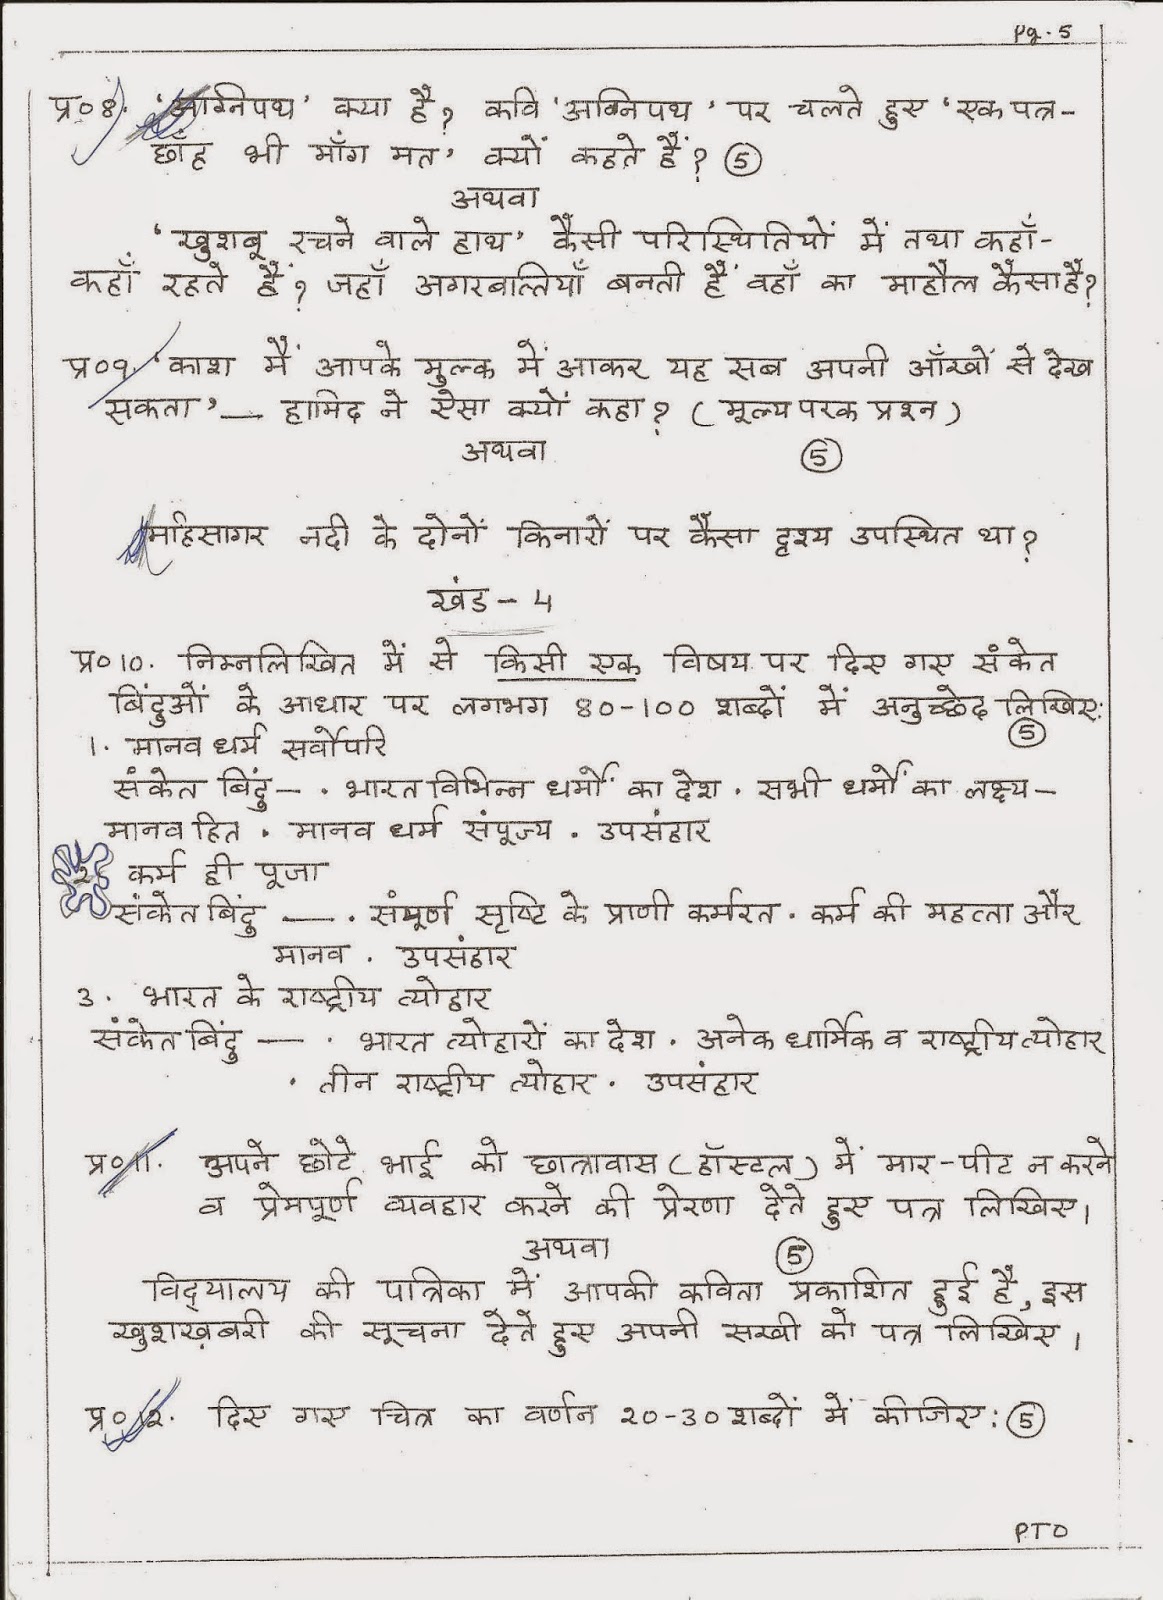 Pg. 5
प्र० 8). 'अग्निपथ' क्या है? कवि 'अग्निपथ' पर चलते हुए 'एक पत्र-
छाँह भी माँग मत' क्यों कहते हैं? (5)
अथवा
'खुशबू रचने वाले हाथ' कैसी परिस्थितियों में तथा कहाँ-
कहाँ रहते हैं? जहाँ अगरबत्तियाँ बनती हैं वहाँ का माहौल कैसा है?
प्र० 9. 'काश मैं आपके मुल्क में आकर यह सब अपनी आँखों से देख
सकता' — हामिद ने ऐसा क्यों कहा? (मूल्यपरक प्रश्न)
अथवा (5)
महिसागर नदी के दोनों किनारों पर कैसा दृश्य उपस्थित था?
खंड - 4
प्र० 10. निम्नलिखित में से किसी एक विषय पर दिए गए संकेत
बिंदुओं के आधार पर लगभग 80-100 शब्दों में अनुच्छेद लिखिए:
(5)
1. मानव धर्म सर्वोपरि
संकेत बिंदु — . भारत विभिन्न धर्मों का देश . सभी धर्मों का लक्ष्य -
मानव हित . मानव धर्म संपूज्य . उपसंहार
2. कर्म ही पूजा
संकेत बिंदु — . संपूर्ण सृष्टि के प्राणी कर्मरत . कर्म की महत्ता और
मानव . उपसंहार
3. भारत के राष्ट्रीय त्योहार
संकेत बिंदु — . भारत त्योहारों का देश . अनेक धार्मिक व राष्ट्रीय त्योहार
. तीन राष्ट्रीय त्योहार . उपसंहार
प्र० 11. अपने छोटे भाई को छात्रावास (हॉस्टल) में मार-पीट न करने
व प्रेमपूर्ण व्यवहार करने की प्रेरणा देते हुए पत्र लिखिए।
अथवा (5)
विद्यालय की पत्रिका में आपकी कविता प्रकाशित हुई है, इस
खुशख़बरी की सूचना देते हुए अपनी सखी को पत्र लिखिए।
प्र० 12. दिए गए चित्र का वर्णन 20-30 शब्दों में कीजिए: (5)
PTO